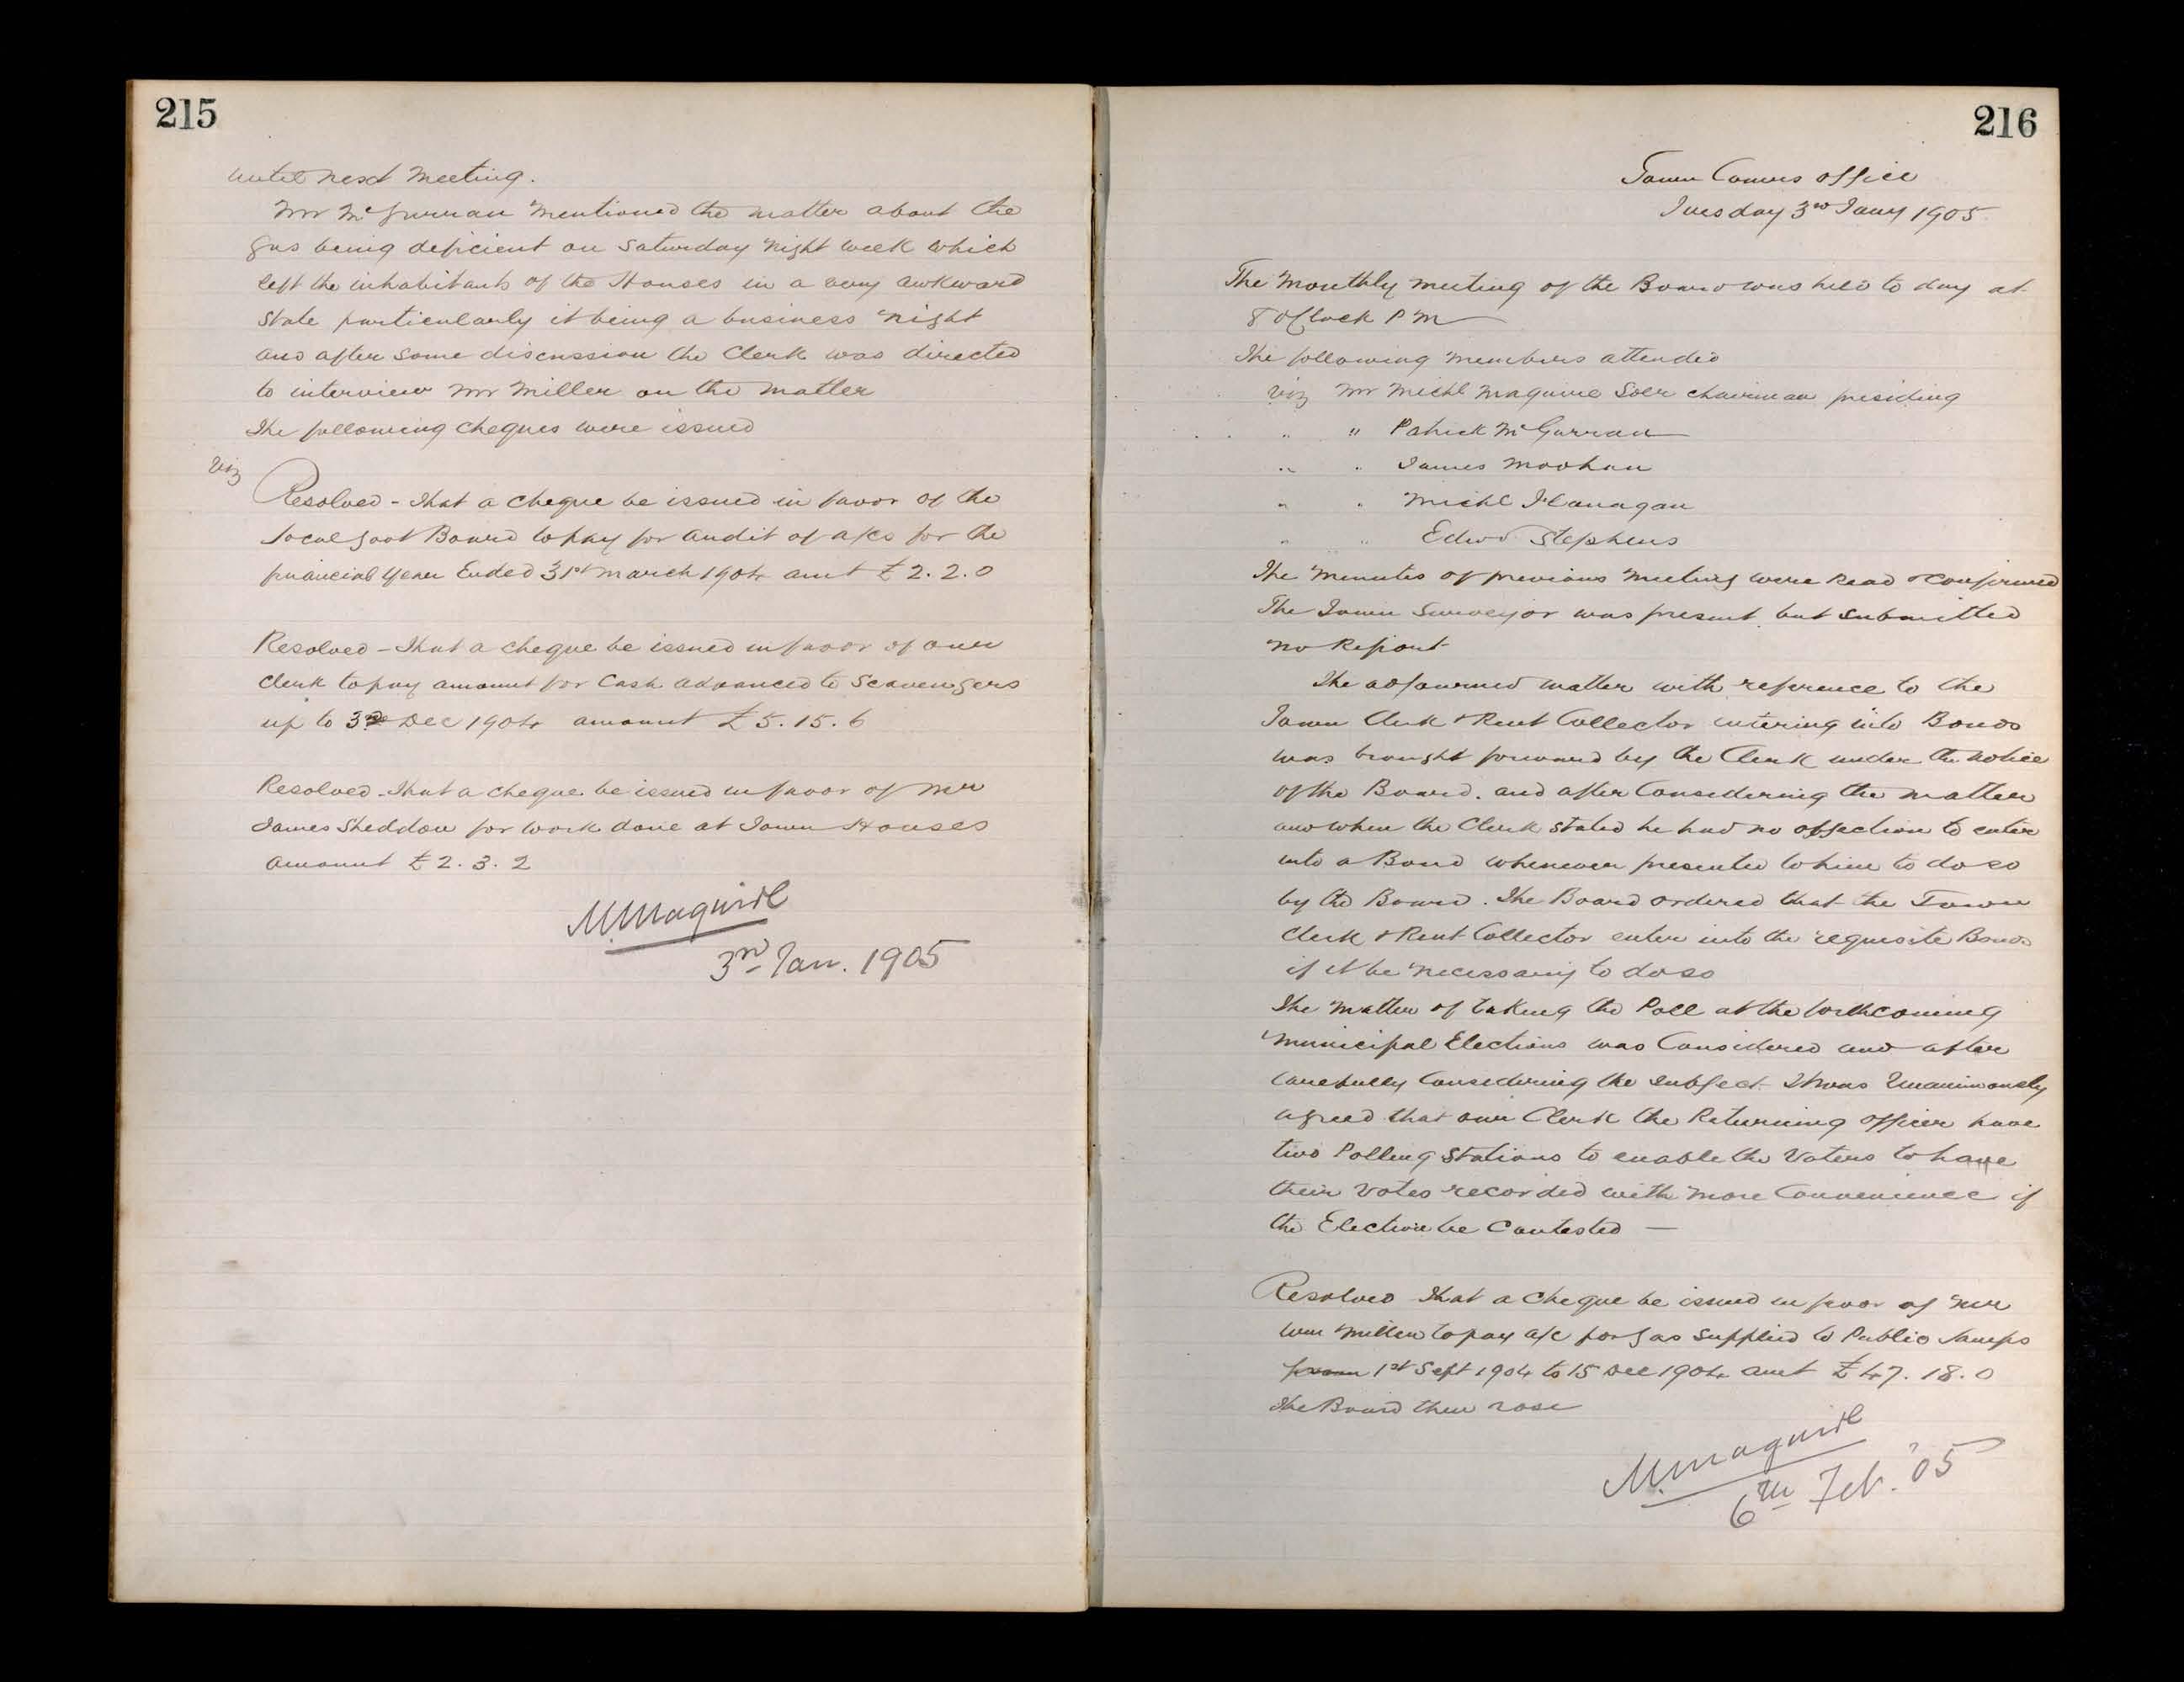 215
until next Meeting.
Mr McGurran Mentioned the matter about the
gas being deficient on Saturday night week which
left the inhabitants of the Houses in a very awkward
State particularly it being a business night
and after some discussion the Clerk was directed
to interview Mr Miller on the matter
The following Cheques were issued
Viz
Resolved - That a Cheque be issued in favor of the
Local Govt Board to pay for Audit of a/cs for the
financial year Ended 31st March 1904 amt £2.2.0
Resolved - That a cheque be issued in favor of our
Clerk to pay amount for Cash advanced to Scavengers
up to 3rd Dec 1904 amount £5.15.6
Resolved - That a cheque be issued in favor of Mr
James Sheddon for work done at Town Houses
Amount £2.3.2
M. Maguire
3rd Jan. 1905
216
Town Comrs Office
Tuesday 3rd Jany 1905
The Monthly meeting of the Board was held to day at
8 O'Clock P M
The following Members attended
Viz Mr Michl Maguire Solr Chairman presiding
" " Patrick McGurran
" " James Moohan
" " Michl Flanagan
" " Edwd Stephens
The Minutes of previous Meeting were Read & Confirmed
The Town Surveyor was present but submitted
no Report
The adjourned matter with reference to the
Town Clerk & Rent Collector entering into Bonds
was brought forward by the Clerk under the notice
of the Board. and after Considering the matter
and when the Clerk stated he had no objection to enter
into a Bond whenever presented to him to do so
by the Board. The Board ordered that the Town
Clerk & Rent Collector enter into the requisite Bonds
if it be necessary to do so
The Matter of taking the Poll at the forthcoming
Municipal Elections was Considered and after
Carefully Considering the subject It was Unanimously
agreed that our Clerk the Returning Officer have
two Polling Stations to enable the Voters to have
their Votes recorded with more Convenience if
the Election be Contested —
Resolved That a Cheque be issued in favor of Mr
Wm Miller to pay a/c for gas supplied to Public Lamps
from 1st Sept 1904 to 15 Dec 1904 amt £47.18.0
The Board then rose
M. Maguire
6th Feb. '05